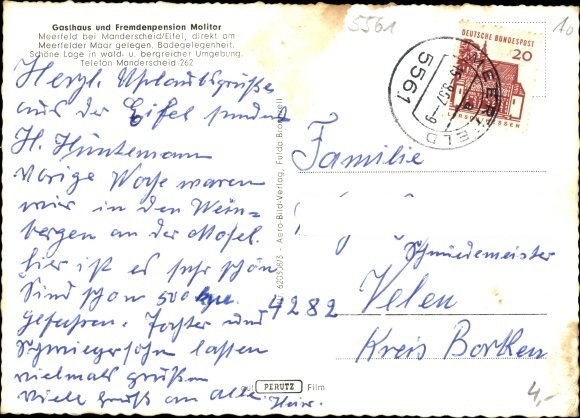 5561
10
Gasthaus und Fremdenpension Molitor
Meerfeld bei Manderscheid/Eifel, direkt am
Meerfelder Maar gelegen. Badegelegenheit.
Schöne Lage in wald- u. bergreicher Umgebung.
Telefon Manderscheid 262
Herzl. Urlaubsgrüße
aus der Eifel senden
H. Hüntemann
Vorige Woche waren
wir in den Wein-
bergen an der Mosel.
Hier ist es sehr schön
Sind schon 500
gefahren. Tochter und
Schwiegersohn lassen
vielmals grüßen
Viele Grüße an Alle
Heinr.
Aero-Bild-Verlag, Fulda
PERUTZ Film
DEUTSCHE BUNDESPOST
20
MEERFELD
5561
Familie
Schmiedemeister
4282 Velen
Kreis Borken
4,-